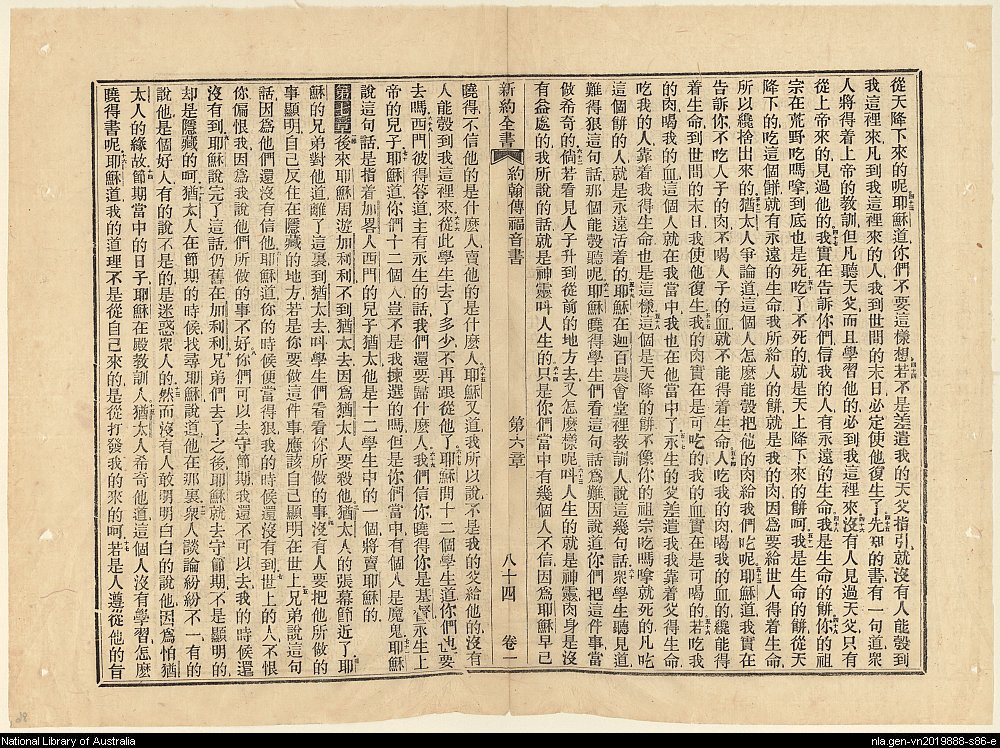 從天降下來的呢耶穌道你們不要這樣想若不是差遣我的天父指引就沒有人能彀到
我這裡來凡到我這裡來的人我到世間的末日必定使他復生了先知的書有一句道衆
人將得着上帝的教訓但凡聽天父而且學習他的必到我這裡來沒有人見過天父只有
從上帝來的見過他的我實在告訴你們信我的人有永遠的生命我是生命的餅你的祖
宗在荒野吃嗎嗱到底也是死吃了不死的就是天上降下來的餅呵我是生命的餅從天
降下的吃這個餅就有永遠的生命我所給人的餅就是我的肉因爲要給世人得着生命
所以纔捨出來的猶太人爭論道這個人怎麼能彀把他的肉給我們吃呢耶穌道我實在
告訴你不吃人子的肉不喝人子的血就不能得着生命人吃我的肉喝我的血的纔能得
着生命到世間的末日我使他復生我的肉實在是可吃的我的血實在是可喝的若吃我
的肉喝我的血這個人就在我當中我也在他當中了永生的父差遣我我靠着父得生命
吃我的人靠着我得生命也是這樣這個是天降的餅不像你的祖宗吃嗎嗱就死的凡吃
這個餅的人就是永遠活着的耶穌在迦百農會堂裡教訓人說這幾句話衆學生聽見道
難得狠這句話那個能彀聽呢耶穌曉得學生們看這句話爲難因說道你們把這件事當
做希奇的倘若看見人子升到從前的地方去又怎麼樣呢呌人生的就是神靈肉身是沒
有益處的我所說的話就是神靈呌人生的只是你們當中有幾個人不信因爲耶穌早已
新約全書 約翰傳福音書 第六章 八十四 卷一
曉得不信他的是什麼人賣他的是什麼人耶穌又道我所以說不是我的父給他的沒有
人能彀到我這裡來從此學生去了多少不再跟從他了耶穌問十二個學生道你們也要
去嗎西門彼得答道主有永生的話我們還要歸什麼人我們信你曉得你是基督永生上
帝的兒子耶穌道你們十二個人豈不是我揀選的嗎但是你們當中有個人是魔鬼耶穌
說這句話是指着加畧人西門的兒子猶太他是十二學生中的一個將賣耶穌的
第七章後來耶穌周遊加利利不到猶太去因爲猶太人要殺他猶太人的張幕節近了耶
穌的兄弟對他道離了這裏到猶太去呌學生們看看你所做的事沒有人要把他所做的
事顯明自己反住在隱藏的地方若是你要做這件事應該自己顯明在世上兄弟說這句
話因爲他們還沒有信他耶穌道你的時候便當得狠我的時候還沒有到世上的人不恨
你偏恨我因爲我說他們所做的事不好你們可以去守節期我還不可以去我的時候還
沒有到耶穌說完了這話仍舊在加利利兄弟們去了之後耶穌就去守節期不是顯明的
却是隱藏的呵猶太人在節期的時候找尋耶穌說道他在那裏衆人談論紛紛不一有的
說他是個好人有的說不是的是迷惑衆人的然而沒有人敢明明白白的說他因爲怕猶
太人的緣故節期當中的日子耶穌在殿教訓人猶太人希奇他道這個人沒有學習怎麼
曉得書呢耶穌道我的道理不是從自己來的是從打發我的來的呵若是人遵從他的旨
National Library of Australia
nla.gen-vn2019888-s86-e